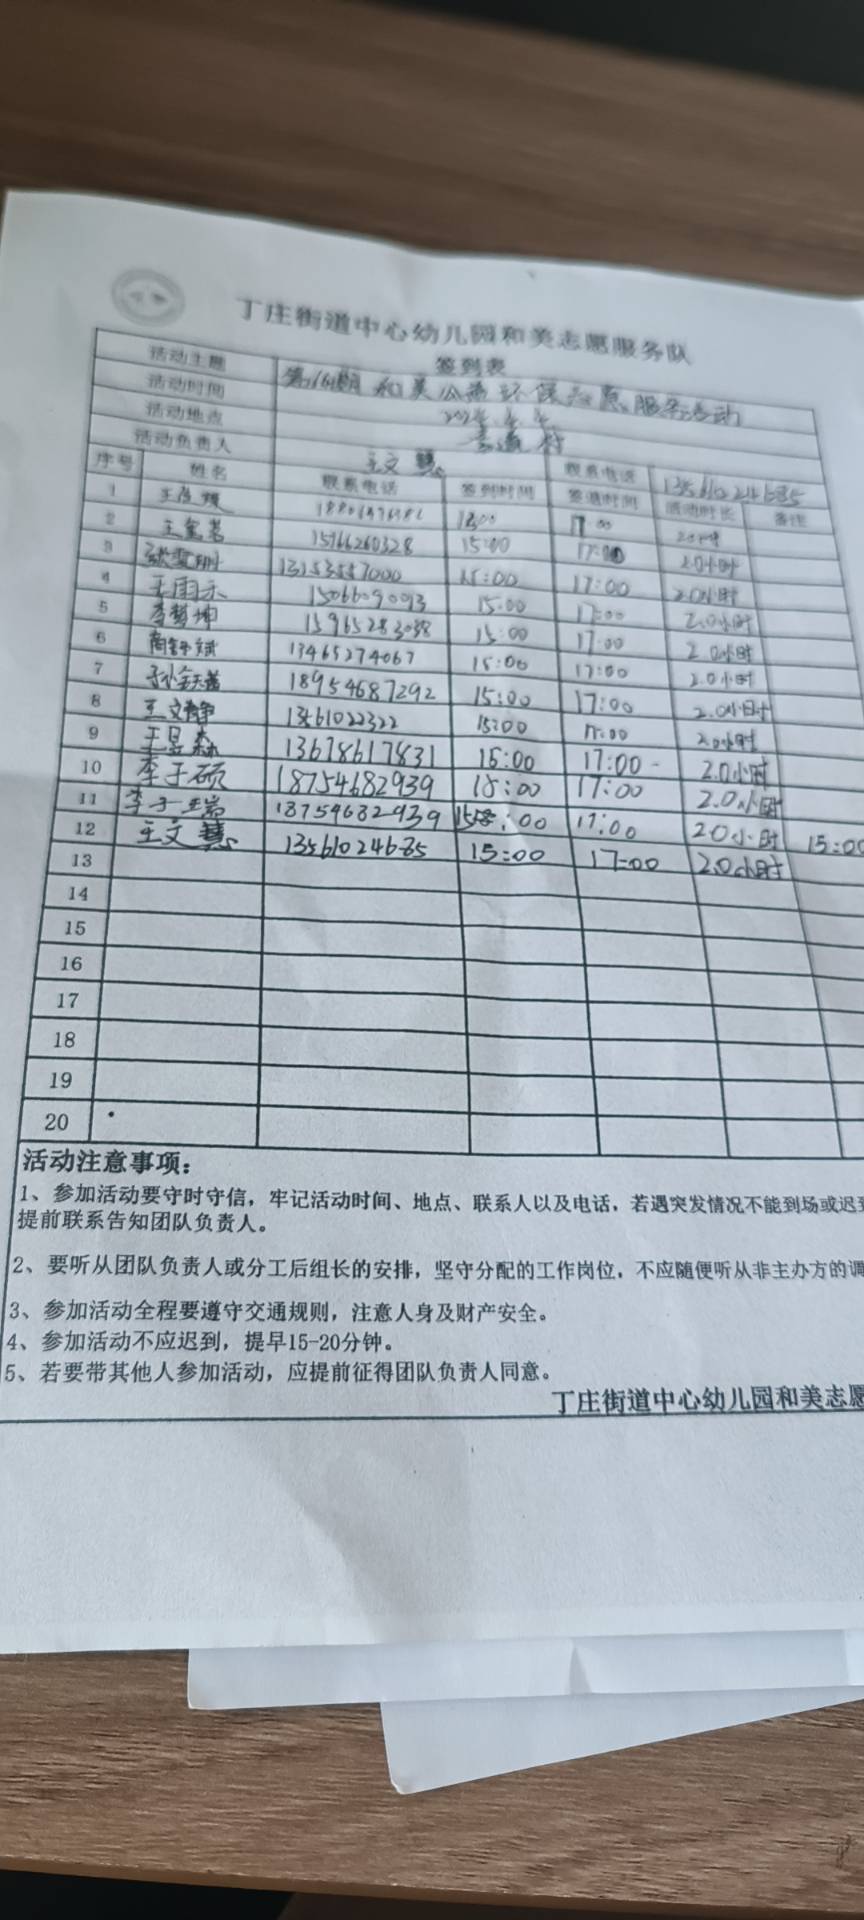 丁庄街道中心幼儿园和美志愿服务队
签到表
活动主题 第 期 和美公益环保志愿服务活动
活动时间
活动地点
活动负责人 王文慧 联系电话 13561024685
序号 姓名 联系电话 签到时间 签退时间 活动时长 备注
1 17:00 2.0小时
2 15166260328 15:00 17:00 2.0小时
3 13153557000 15:00 17:00 2.0小时
4 王雨禾 1506609093 15:00 17:00 2.0小时
5 李梦坤 15965283038 15:00 17:00 2.0小时
6 13465274067 15:00 17:00 2.0小时
7 18954687292 15:00 17:00 2.0小时
8 王文静 13561022322 15:00 17:00 2.0小时
9 王昱森 13678617831 15:00 17:00 2.0小时
10 李子硕 18754682939 15:00 17:00 2.0小时
11 李子瑞 18754682939 :00 17:00 2.0小时 15:00
12 王文慧 13561024685 15:00 17:00 2.0小时
13
14
15
16
17
18
19
20
活动注意事项：
1、参加活动要守时守信，牢记活动时间、地点、联系人以及电话，若遇突发情况不能到场或迟到
提前联系告知团队负责人。
2、要听从团队负责人或分工后组长的安排，坚守分配的工作岗位，不应随便听从非主办方的调
3、参加活动全程要遵守交通规则，注意人身及财产安全。
4、参加活动不应迟到，提早15-20分钟。
5、若要带其他人参加活动，应提前征得团队负责人同意。
丁庄街道中心幼儿园和美志愿